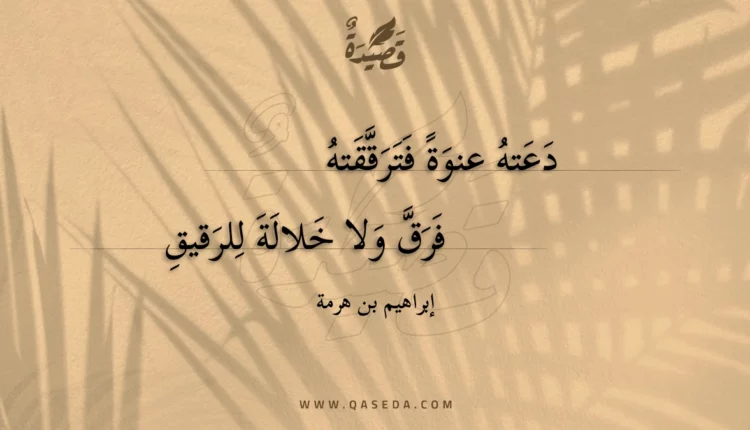 قَصِيْدَةٌ
دَعَتهُ عنوَةً فَتَرَقَّقَتهُ
فَرَقَّ وَلا خَلالَةَ لِلرَقيقِ
إبراهيم بن هرمة
WWW.QASEDA.COM